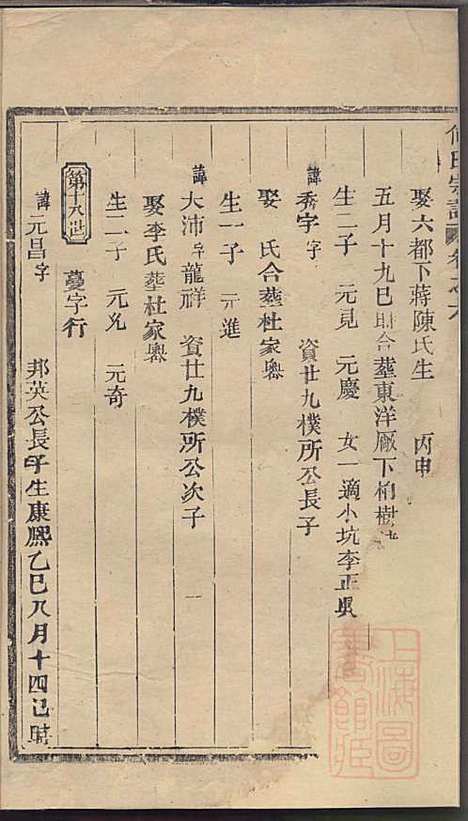 何氏宗譜 卷之六
娶六都下蔣陳氏生 丙申
五月十九巳時合塟東洋厰下柏樹
生二子 元見 元慶 女一適小坑李正
諱秀字 字 資廿九樸所公長子
娶 氏合塟杜家嶴
生一子 元進
諱大沛字龍祥 資廿九樸所公次子
娶李氏塟杜家嶴
生二子 元兊 元奇
第十八世 蔓字行
諱元昌字 邦英公長子生康熙乙巳八月十四巳時
上海圖書館藏